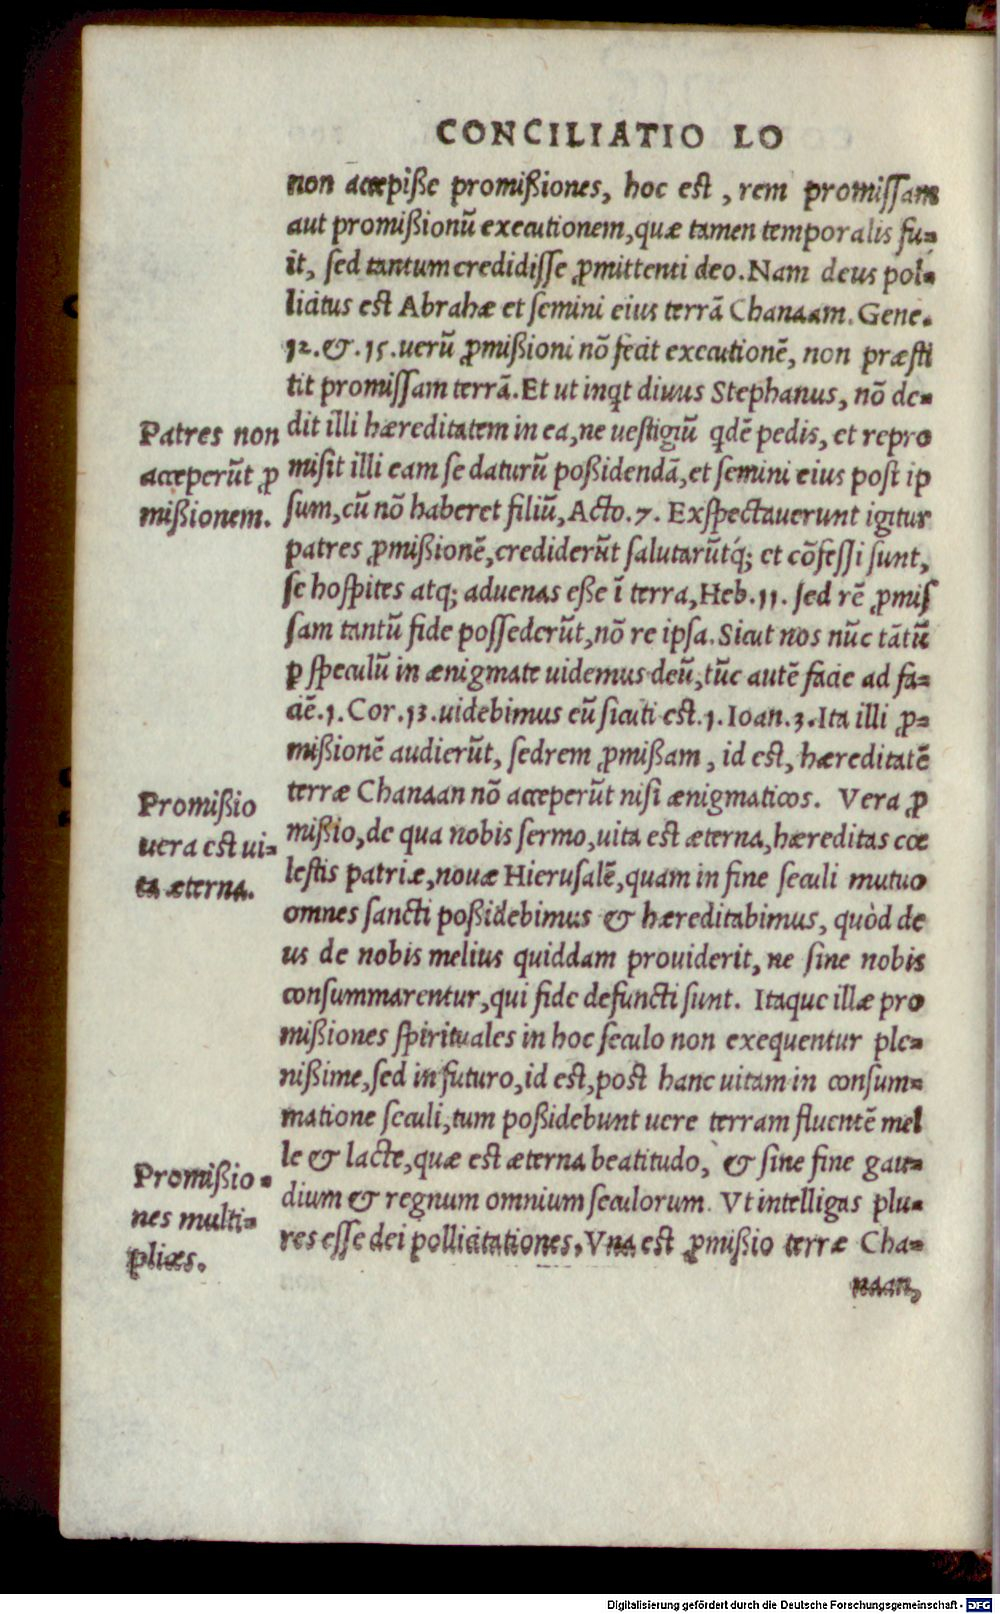 CONCILIATIO LO
non accepiße promißiones, hoc est, rem promissam
aut promißionũ executionem, quæ tamen temporalis fu-
it, sed tantum credidisse ꝓmittenti deo. Nam deus pol-
licitus est Abrahæ et semini eius terrã Chanaam. Gene.
12. & .15. uerũ ꝓmißioni nõ fecit executionẽ, non præsti
tit promissam terrã. Et ut inqt diuus Stephanus, nõ de-
dit illi hæreditatem in ea, ne uestigiũ qdẽ pedis, et repro
misit illi eam se daturũ poßidendã, et semini eius post ip
sum, cũ nõ haberet filiũ, Acto. 7. Exspectauerunt igitur
patres ꝓmißionẽ, crediderũt salutarũtq́; et cõfessi sunt,
se hospites atq; aduenas eße ĩ terra, Heb. 11. sed rẽ ꝓmis
sam tantũ fide possederũt, nõ re ipsa. Sicut nos nũc tãtũ
ꝑ speculũ in ænigmate uidemus deũ, tũc autẽ facie ad fa-
ciẽ. 1. Cor. 13. uidebimus eũ sicuti est. 1. Ioan. 3. Ita illi ꝓ-
mißionẽ audierũt, sed rem ꝓmißam, id est, hæreditatẽ
terræ Chanaan nõ acceperũt nisi ænigmaticos. Vera ꝓ
mißio, de qua nobis sermo, uita est æterna, hæreditas cœ
lestis patriæ, nouæ Hierusalẽ, quam in fine seculi mutuo
omnes sancti poßidebimus & hæreditabimus, quòd de
us de nobis melius quiddam prouiderit, ne sine nobis
consummarentur, qui fide defuncti sunt. Itaque illæ pro
mißiones spirituales in hoc seculo non exequentur ple-
nißime, sed in futuro, id est, post hanc uitam in consum-
matione seculi, tum poßidebunt uere terram fluentẽ mel
le & lacte, quæ est æterna beatitudo, & sine fine gau-
dium & regnum omnium seculorum. Vt intelligas plu-
res esse dei pollicitationes. Vna est ꝓmißio terræ Cha-
naan,
Patres non
acceperũt ꝓ
mißionem.
Promißio
uera est ui-
ta æterna.
Promißio-
nes multi-
plices.
Digitalisierung gefördert durch die Deutsche Forschungsgemeinschaft - DFG